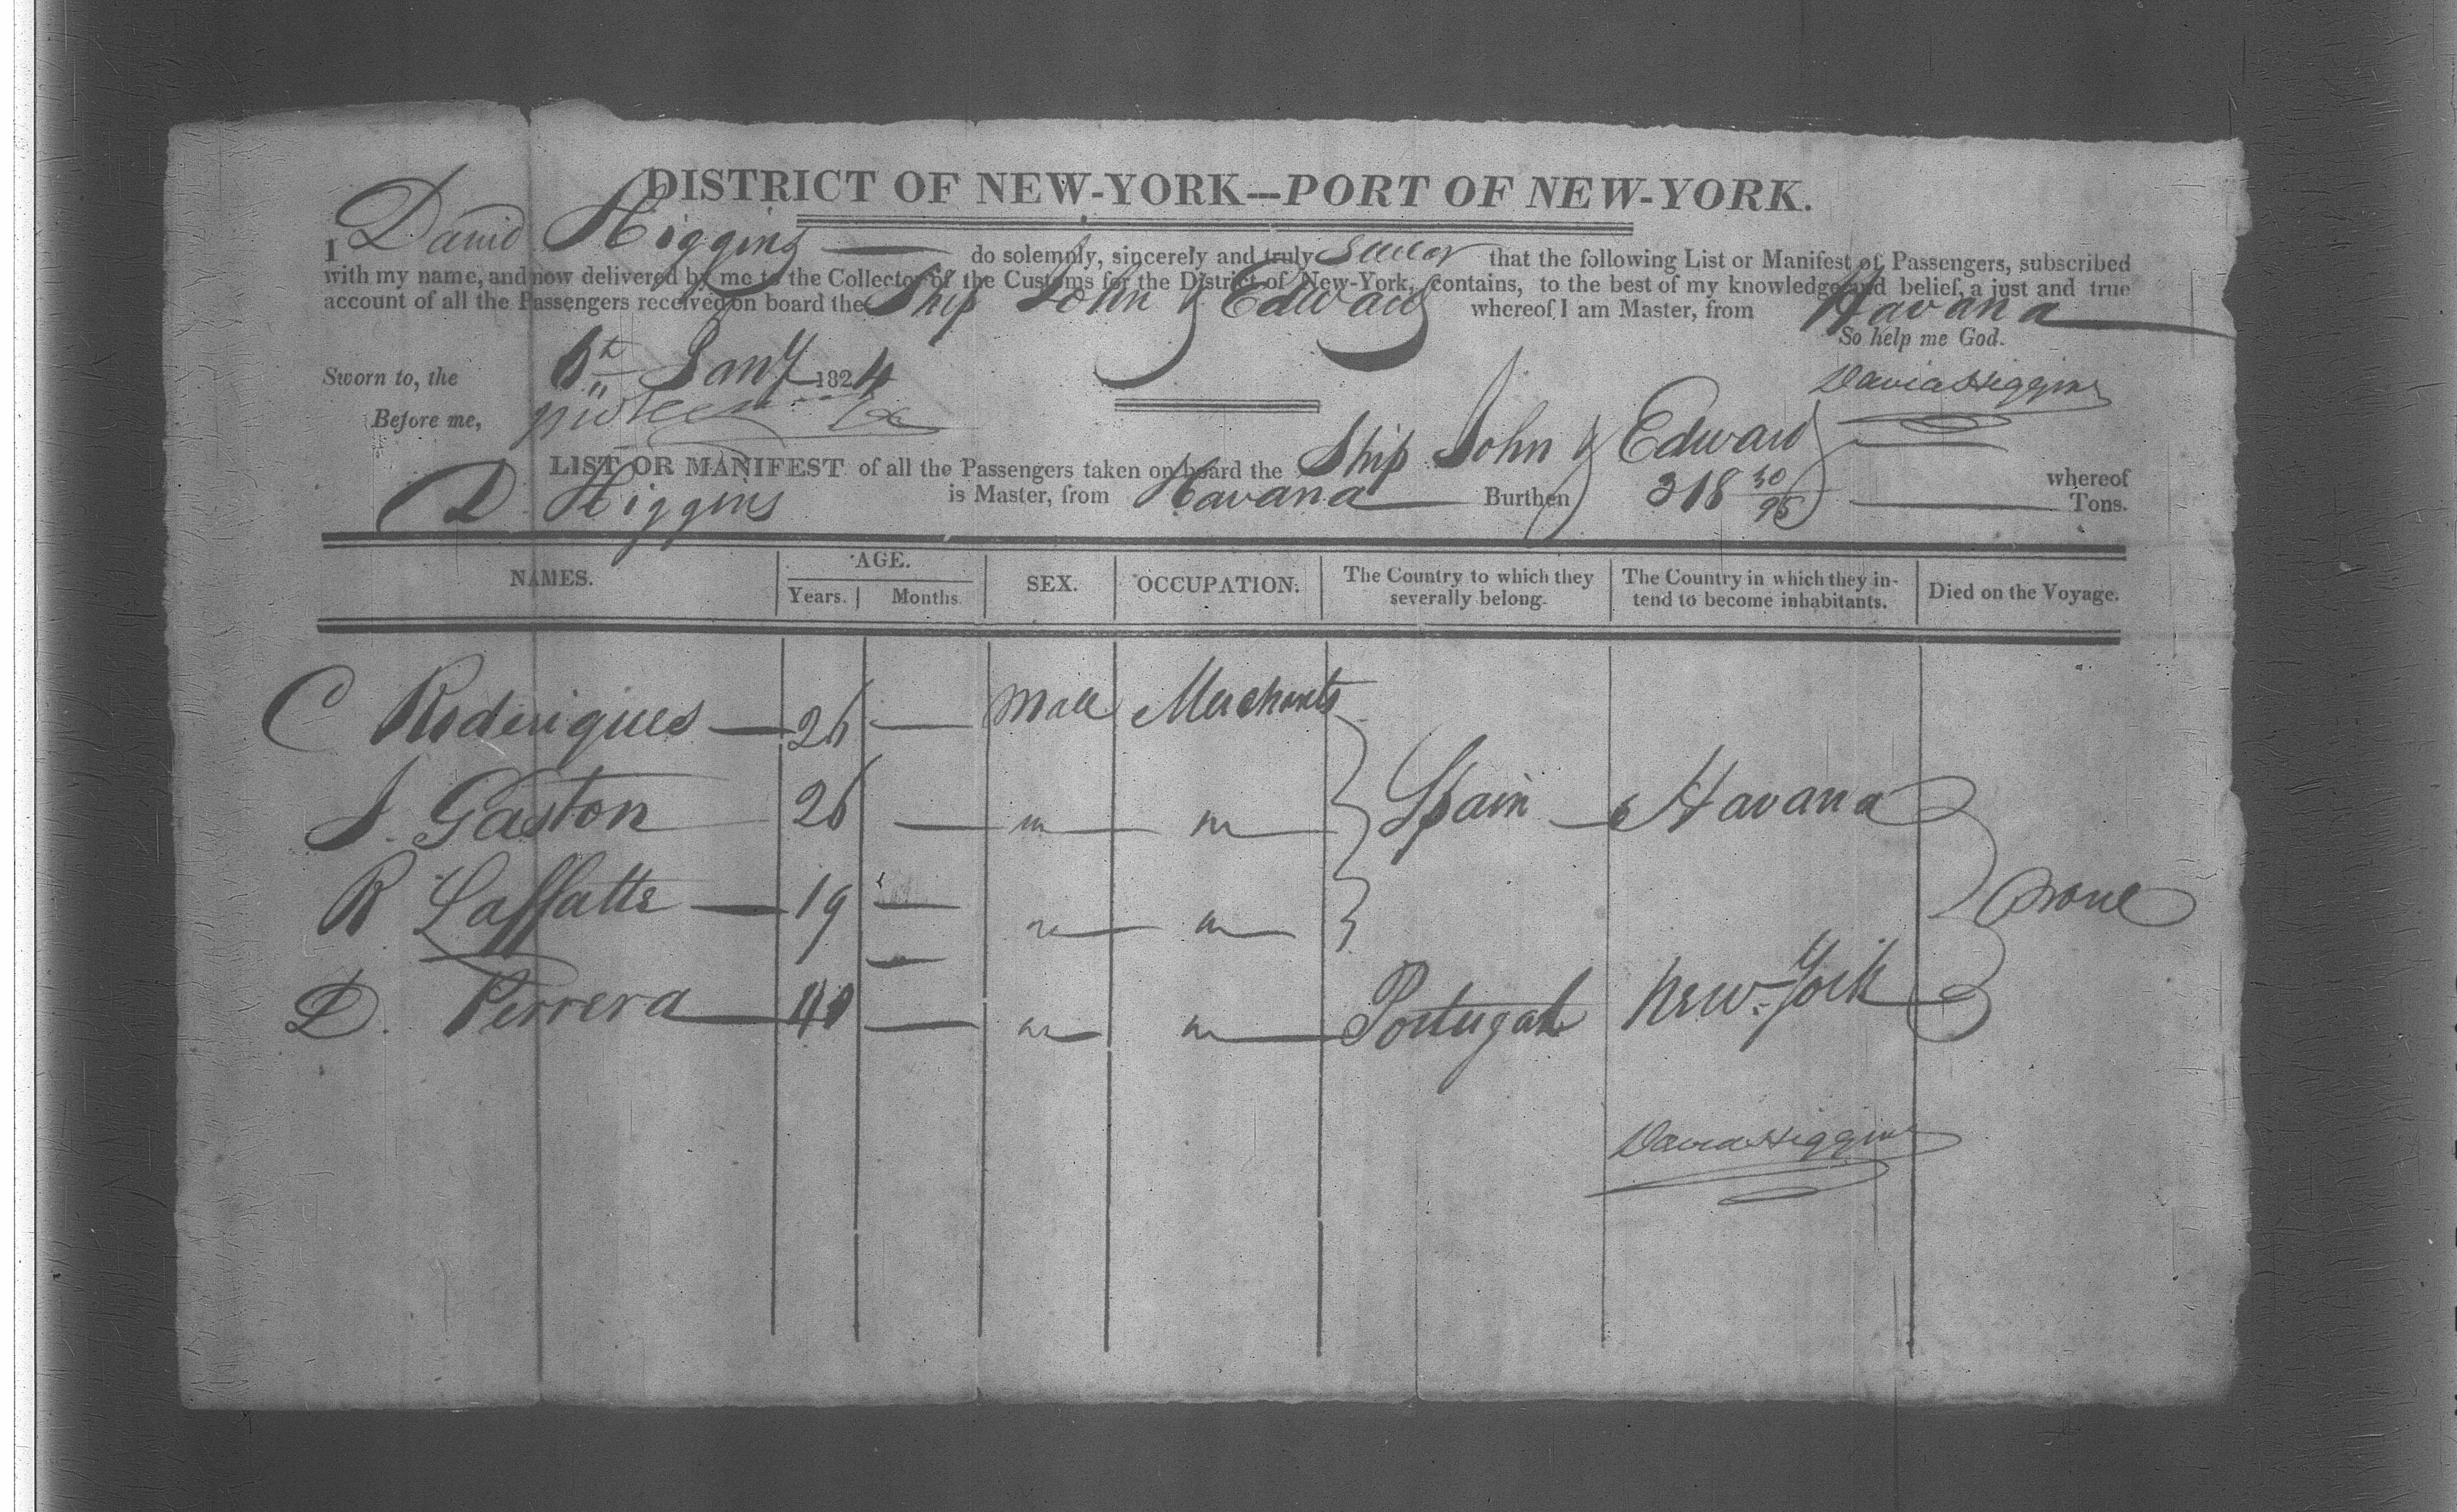 DISTRICT OF NEW-YORK—PORT OF NEW-YORK.
I David Higgins do solemnly, sincerely and truly swear that the following List or Manifest of Passengers, subscribed
with my name, and now delivered by me to the Collector of the Customs for the District of New-York, contains, to the best of my knowledge and belief, a just and true
account of all the Passengers received on board the Ship John & Edward whereof I am Master, from Havana
So help me God.
Sworn to, the 6th Jany 1824
David Higgins
Before me,
LIST OR MANIFEST of all the Passengers taken on board the Ship John & Edward whereof
D. Higgins is Master, from Havana Burthen 318 30/95 Tons.
NAMES. AGE. SEX. OCCUPATION. The Country to which they severally belong. The Country in which they intend to become inhabitants. Died on the Voyage.
Years. Months.
C Roderigues — 26 — Male Merchants
J. Gaston 26 — " " Spain — Havana
R Laffatte — 19 — " " None
D. Perrera — 40 — " " Portugal New-York
David Higgins